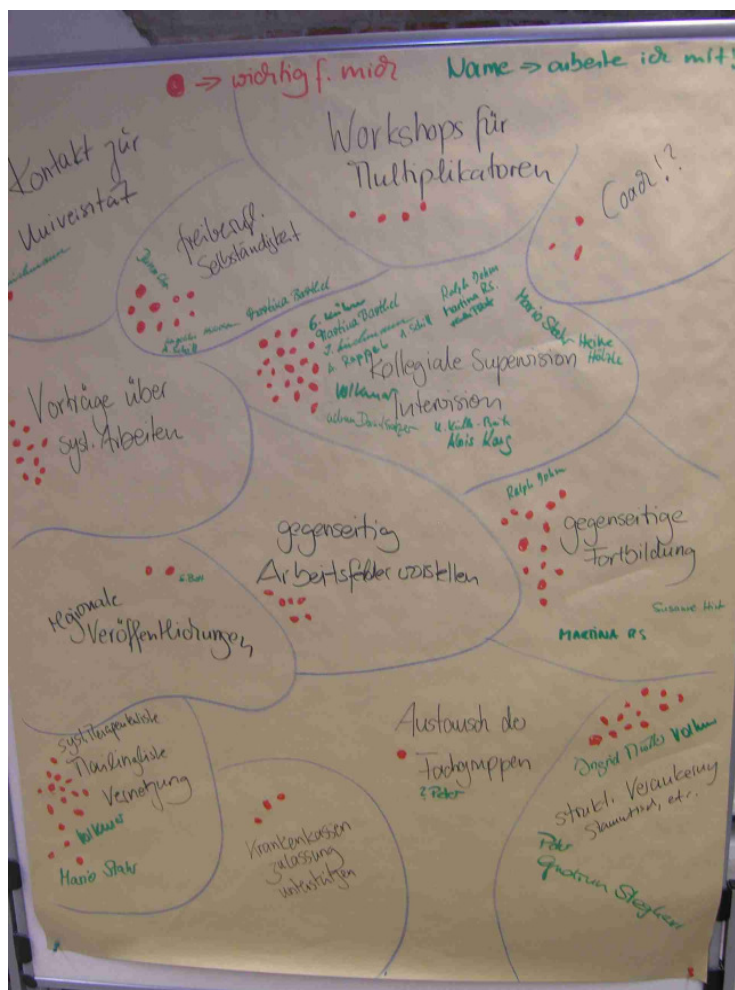 ● → wichtig f. mich
Name → arbeite ich mit!
Kontakt zur
Universität
Workshops für
Multiplikatoren
Coach!?
freiberufl.
Selbständigkeit
Martina Barthel
Martina Barthel
Ralph Dohm
Martina RS.
A. Schill
Mario Stahr
Heike
Kollegiale Supervision
Volkmar
Intervision
Alois Karg
Vorträge über
syst. Arbeiten
gegenseitig
Arbeitsfelder vorstellen
Ralph Dohm
gegenseitige
Fortbildung
Susanne
MARTINA RS
regionale
Veröffentlichungen
syst. Therapeutenliste
Mailingliste
Vernetzung
Volkmar
Mario Stahr
Krankenkassen
zulassung
unterstützen
Austausch der
Fachgruppen
? Peter
Ingrid Müller Volkmar
strukt. Verankerung
Stammtisch, etc.
Peter
Gudrun